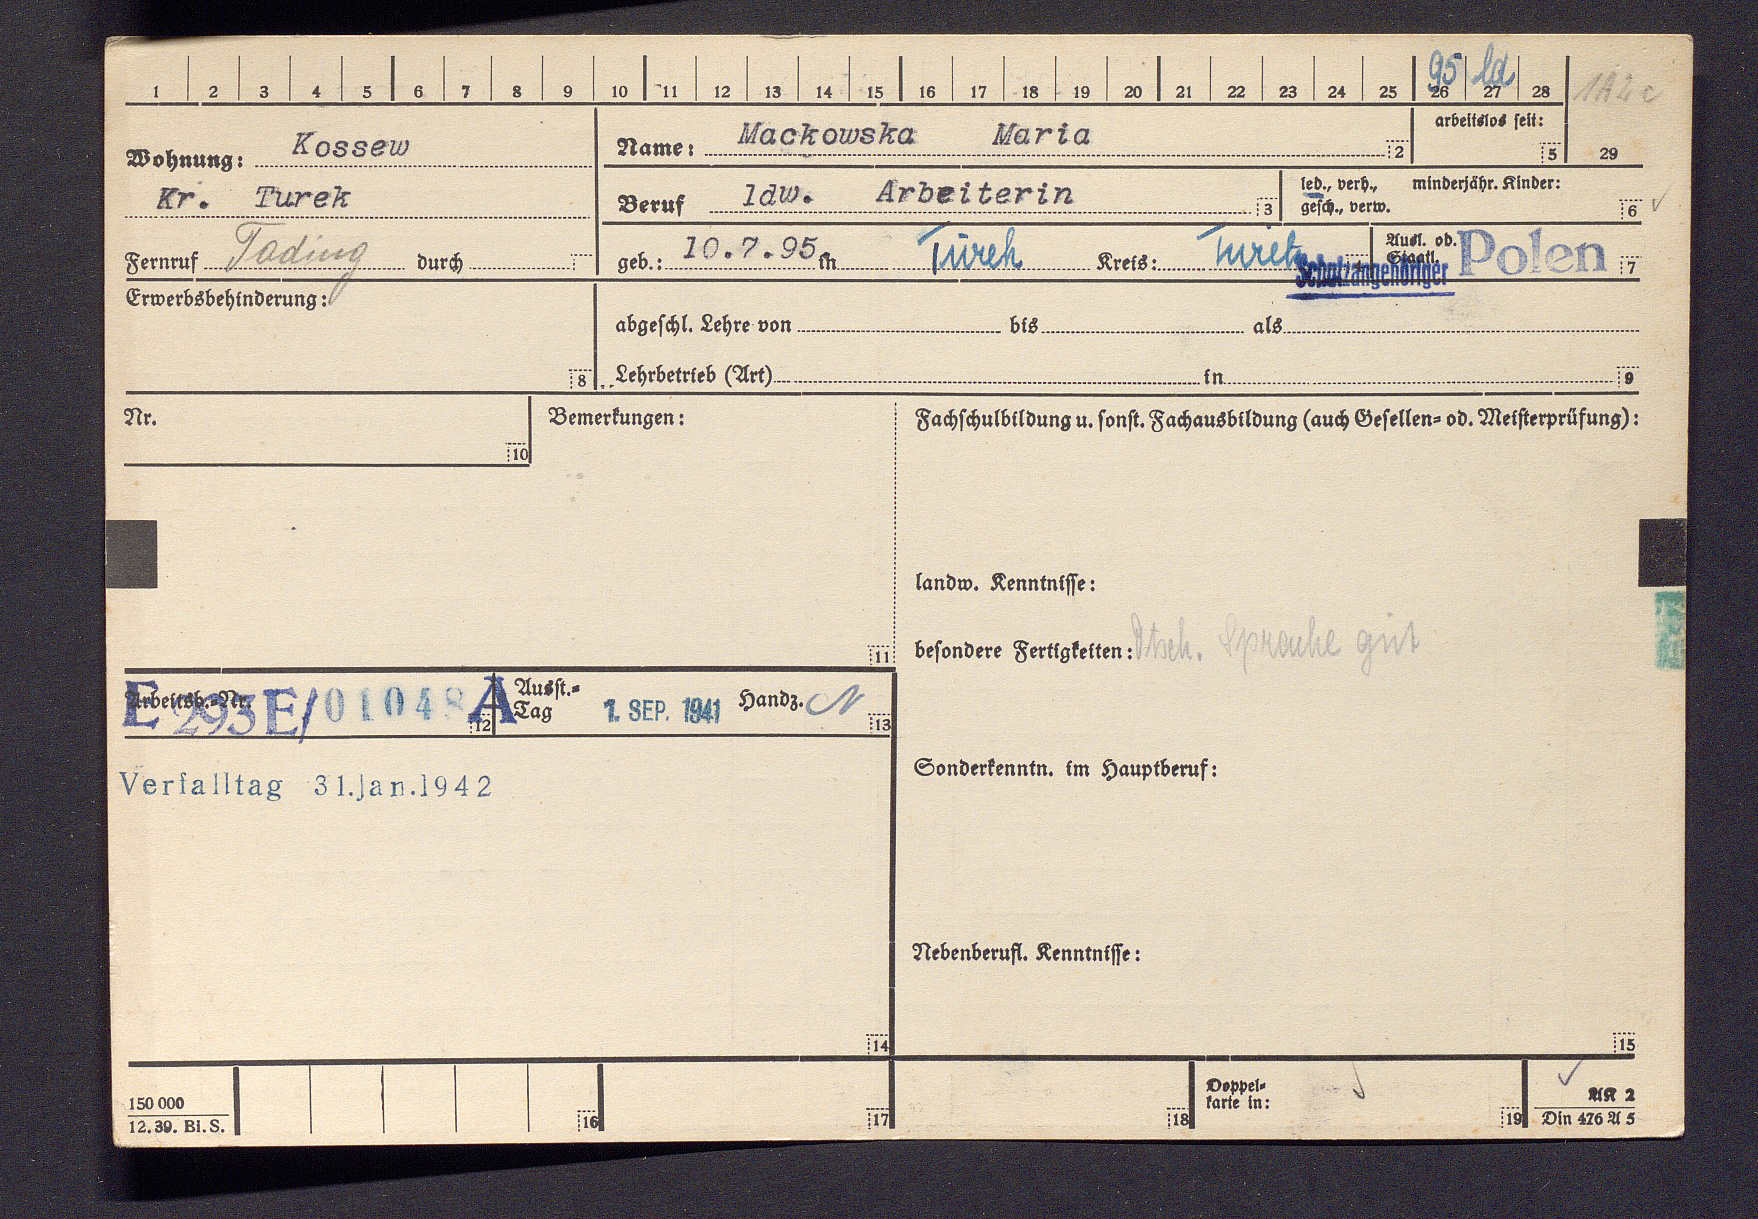 1 2 3 4 5 6 7 8 9 10 11 12 13 14 15 16 17 18 19 20 21 22 23 24 25 26 27 28
95 ld
arbeitslos seit:
5
29
Wohnung: Kossew
Kr. Turek
Name: Mackowska Maria
2
Beruf ldw. Arbeiterin
3
led., verh., minderjähr. Kinder:
gesch., verw.
6
Fernruf Tading durch
geb.: 10.7.95 in Turek Kreis: Turek
Ausl. od.
Staatl.
Polen
7
Schutzangehöriger
Erwerbsbehinderung:
8
abgeschl. Lehre von bis als
Lehrbetrieb (Art) in
9
Nr.
10
Bemerkungen:
11
Fachschulbildung u. sonst. Fachausbildung (auch Gesellen= od. Meisterprüfung):
landw. Kenntnisse:
besondere Fertigkeiten: Dtsch. Sprache gut
Arbeitsb.-Nr.
E 293E/01048 A
12
Ausst.=
Tag
1. SEP. 1941
Handz.
13
Verfalltag 31.Jan.1942
Sonderkenntn. im Hauptberuf:
Nebenberufl. Kenntnisse:
14
15
150 000
12. 39. Bi. S.
16
17
18
Doppel=
karte in:
19
AK 2
Din 476 A 5